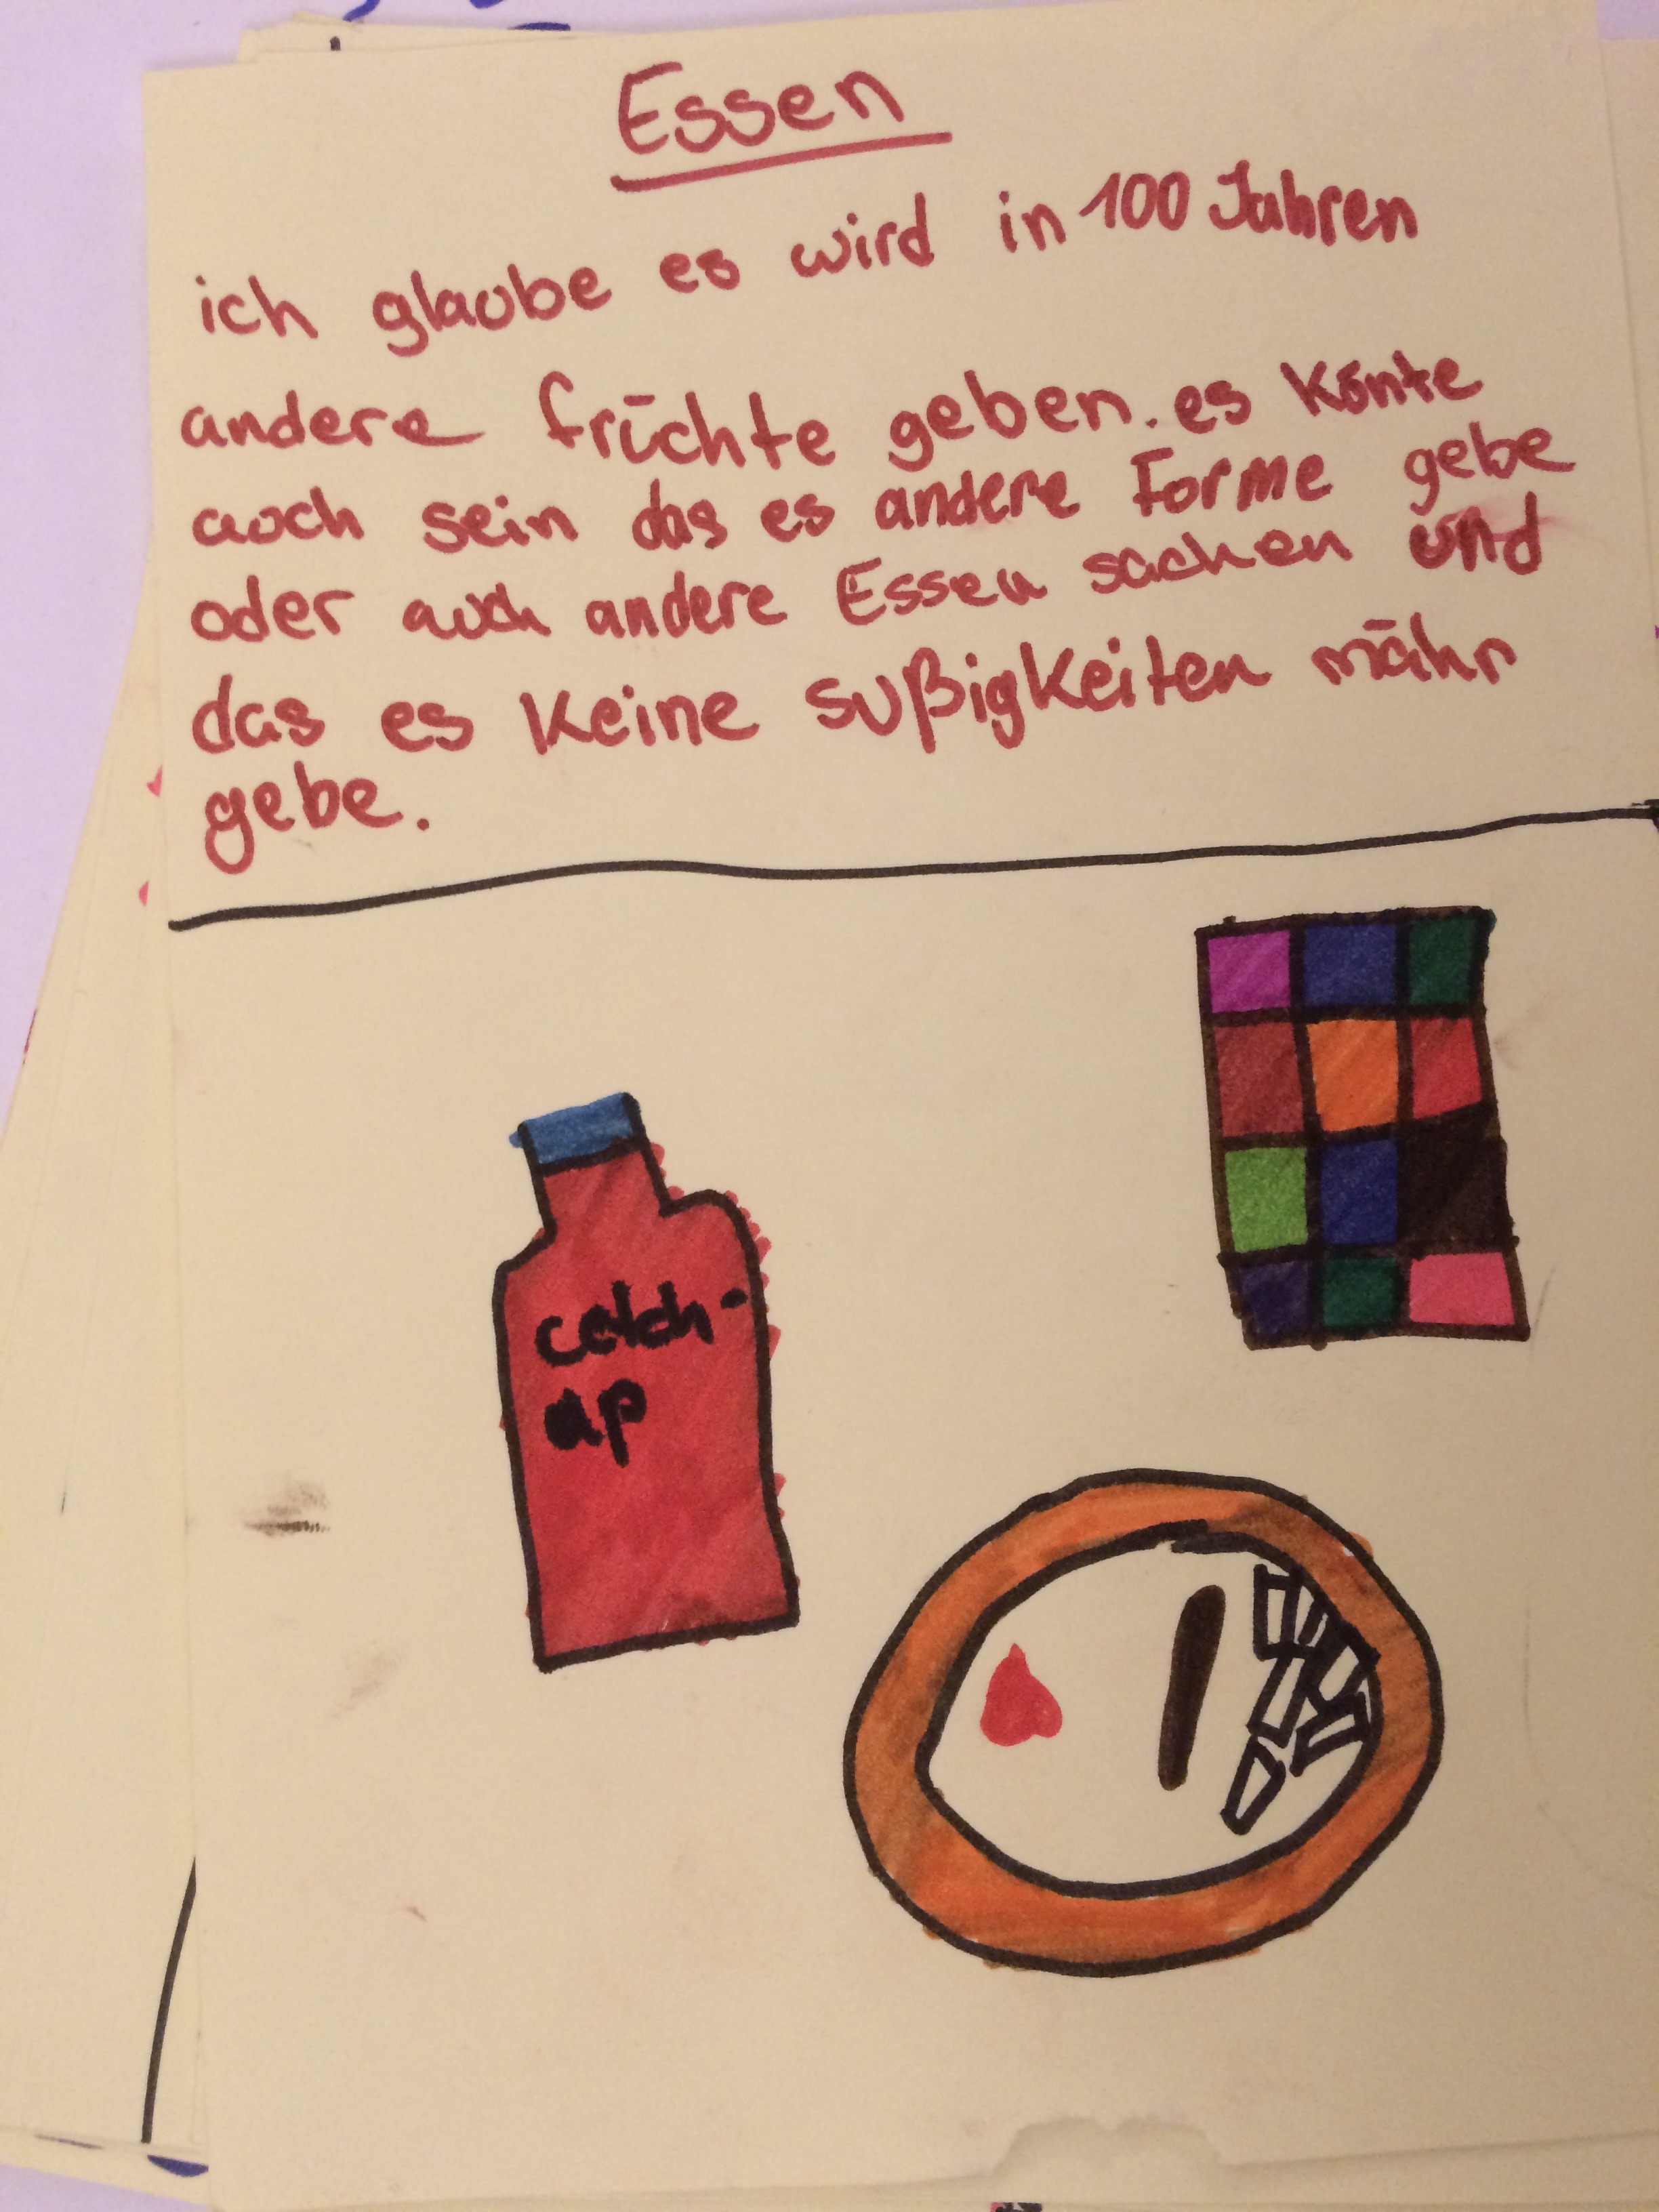 Essen
ich glaube es wird in 100 Jahren
andere früchte geben. es könte
auch sein das es andere Forme gebe
oder auch andere Essen sachen und
das es keine sußigkeiten mähr
gebe.
cetch-
ap